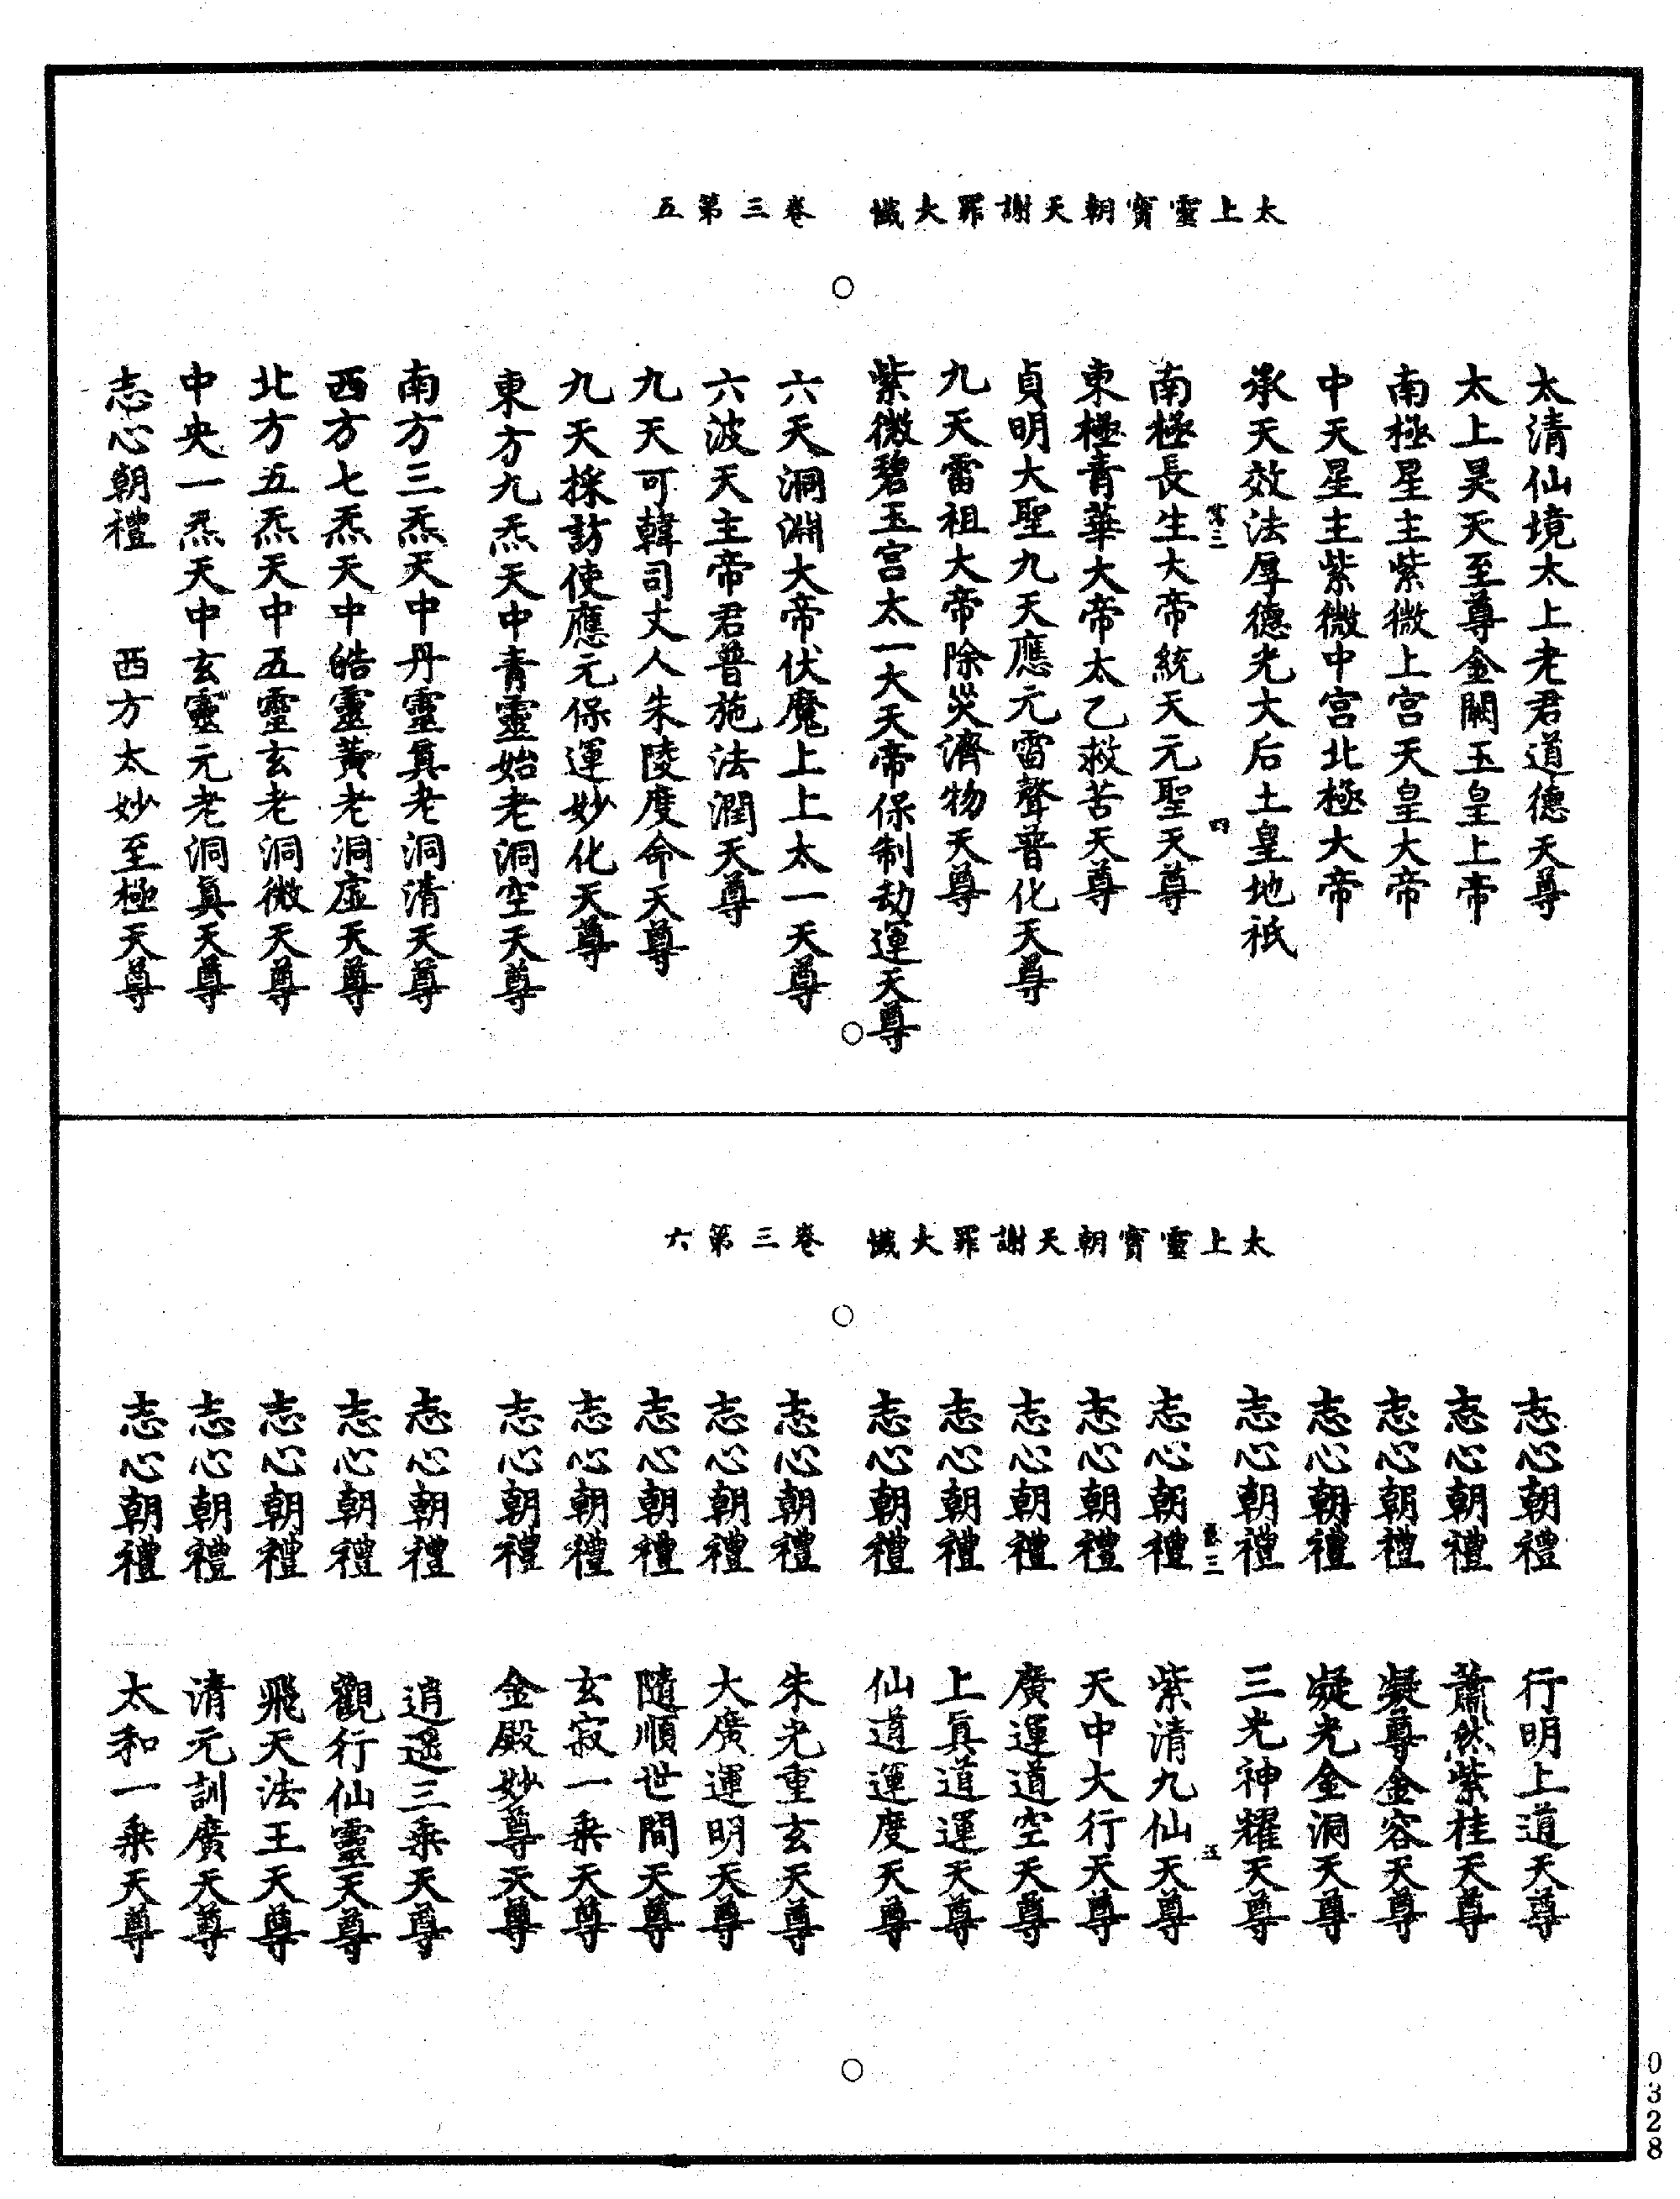 太上靈寶朝天謝罪大懺　卷三第五
太清仙境太上老君道德天尊
太上昊天至尊金闕玉皇上帝
南極星主紫微上宮天皇大帝
中天星主紫微中宮北極大帝
承天效法厚德光大后土皇地祇
四
南極長生大帝統天元聖天尊
東極青華大帝太乙救苦天尊
貞明大聖九天應元雷聲普化天尊
九天雷祖大帝除災濟物天尊
紫微碧玉宮太一大天帝保制劫運天尊
六天洞淵大帝伏魔上上太一天尊
六波天主帝君普施法潤天尊
九天可韓司丈人朱陵度命天尊
九天採訪使應元保運妙化天尊
東方九炁天中青靈始老洞空天尊
南方三炁天中丹靈真老洞清天尊
西方七炁天中皓靈黃老洞虛天尊
北方五炁天中五靈玄老洞微天尊
中央一炁天中玄靈元老洞真天尊
志心朝禮　西方太妙至極天尊
太上靈寶朝天謝罪大懺　卷三第六
志心朝禮　行明上道天尊
志心朝禮　蕭然紫桂天尊
志心朝禮　凝尊金容天尊
志心朝禮　凝光金洞天尊
志心朝禮　三光神耀天尊
五
志心朝禮　紫清九仙天尊
志心朝禮　天中大行天尊
志心朝禮　廣運道空天尊
志心朝禮　上真道運天尊
志心朝禮　仙道運度天尊
志心朝禮　朱光重玄天尊
志心朝禮　大廣運明天尊
志心朝禮　隨順世間天尊
志心朝禮　玄寂一乘天尊
志心朝禮　金殿妙尊天尊
志心朝禮　逍遥三乘天尊
志心朝禮　觀行仙靈天尊
志心朝禮　飛天法王天尊
志心朝禮　清元訓廣天尊
志心朝禮　太和一乘天尊
0328